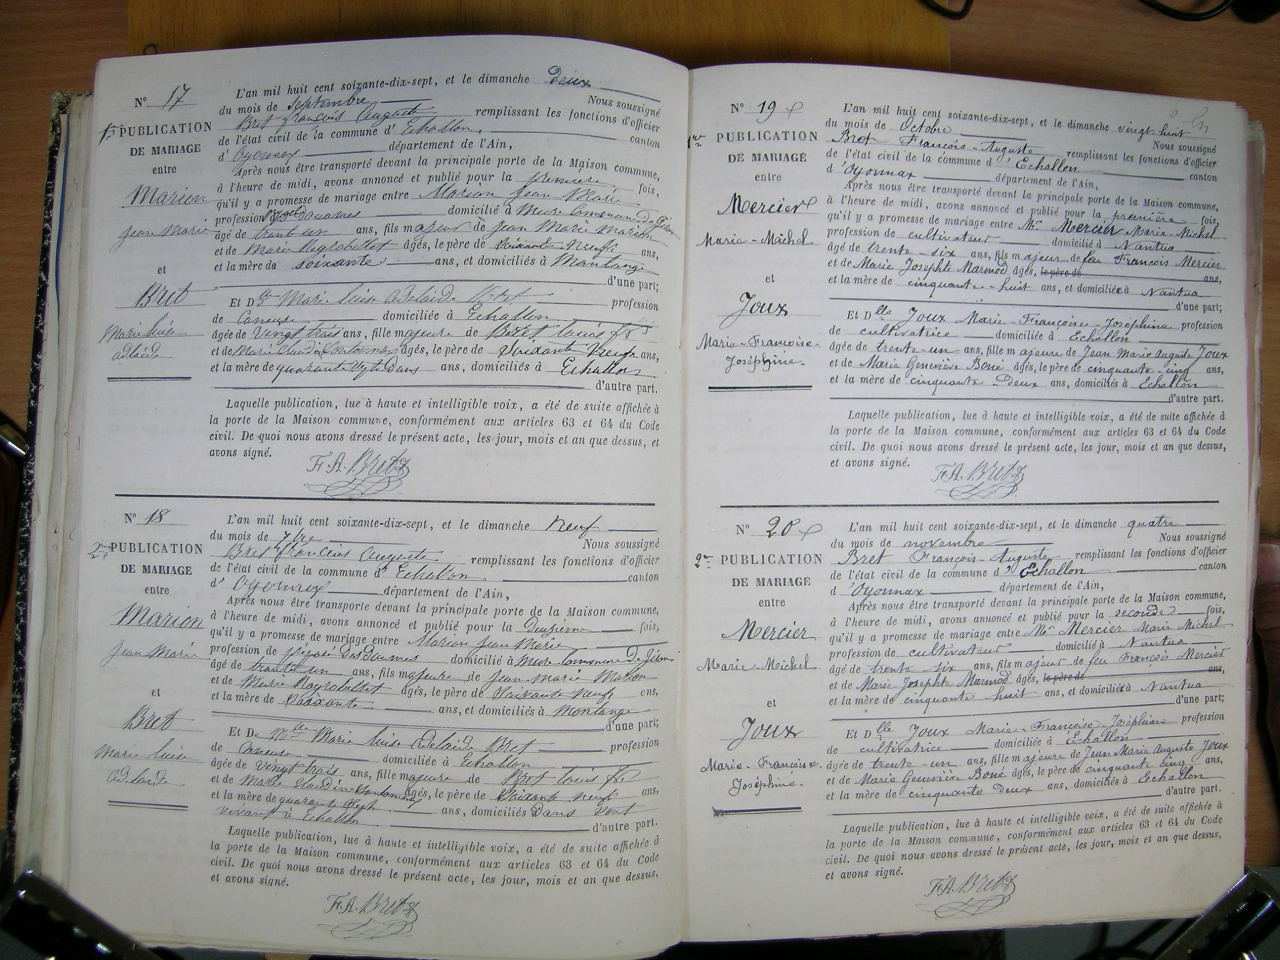 N° 17
1re PUBLICATION
DE MARIAGE
entre
Marion
Jean Marie
et
Bret
Marie Luise
adelaide
L'an mil huit cent soixante-dix-sept, et le dimanche Deux
du mois de Septembre Nous soussigné
Bret françois Auguste remplissant les fonctions d'officier
de l'état civil de la commune d'Echallon, canton
d'Oyonnax département de l'Ain,
Après nous être transporté devant la principale porte de la Maison commune,
à l'heure de midi, avons annoncé et publié pour la première fois,
qu'il y a promesse de mariage entre Marion Jean Marie
profession douanes domicilié à
âgé de trent un ans, fils majeur de Jean Marie Marion
et de Marie âgés, le père de Soixante Neuf ans,
et la mère de soixante ans, et domiciliés à
d'une part;
ET Dlle Marie luise adelaide Bret profession
de domiciliée à Echallon
âgée de Vingt trois ans, fille majeure de Bret louis
et de Marie âgés, le père de Soixante Neuf ans,
et la mère de quarante ans, domiciliés à Echallon
d'autre part.
Laquelle publication, lue à haute et intelligible voix, a été de suite affichée à
la porte de la Maison commune, conformément aux articles 63 et 64 du Code
civil. De quoi nous avons dressé le présent acte, les jour, mois et an que dessus, et
avons signé.
F.A. Bret
N° 18
2e PUBLICATION
DE MARIAGE
entre
Marion
Jean Marie
et
Bret
Marie Luise
adelaide
L'an mil huit cent soixante-dix-sept, et le dimanche neuf
du mois de 7bre Nous soussigné
Bret francois Auguste remplissant les fonctions d'officier
de l'état civil de la commune d'Echallon canton
d'Oyonnax département de l'Ain,
Après nous être transporté devant la principale porte de la Maison commune,
à l'heure de midi, avons annoncé et publié pour la Deuxième fois,
qu'il y a promesse de mariage entre Marion Jean Marie
profession de douanes domicilié à
âgé de trante un ans, fils majeure de Jean Marie Marion
et de Marie âgés, le père de Soixante neuf ans,
et la mère de Soixante ans, et domiciliés à Montange
d'une part;
ET De Marie luise adelaide Bret profession
de domiciliée à Echallon
âgée de vingt trois ans, fille majeure de Bret louis
et de Marie âgés, le père de Soixante neuf ans,
et la mère de quarante ans, domiciliés
vivant à Echallon d'autre part.
Laquelle publication, lue à haute et intelligible voix, a été de suite affichée à
la porte de la Maison commune, conformément aux articles 63 et 64 du Code
civil. De quoi nous avons dressé le présent acte, les jour, mois et an que dessus,
et avons signé.
F.A. Bret
N° 19
1re PUBLICATION
DE MARIAGE
entre
Mercier
Marie-Michel
et
Joux
Marie-Françoise-
Joséphine.
L'an mil huit cent soixante-dix-sept, et le dimanche vingt huit
du mois de Octobre Nous soussigné
Bret François-Auguste remplissant les fonctions d'officier
de l'état civil de la commune d'Echallon canton
d'Oyonnax département de l'Ain,
Après nous être transporté devant la principale porte de la Maison commune,
à l'heure de midi, avons annoncé et publié pour la première fois,
qu'il y a promesse de mariage entre Mr Mercier Marie-Michel
profession de cultivateur domicilié à Nantua
âgé de trente-six ans, fils majeur de feu François Mercier
et de Marie Josephte Marmod âgés, le père de
et la mère de cinquante-huit ans, et domiciliée à Nantua
d'une part;
ET Dlle Joux Marie-Françoise-Joséphine profession
de cultivatrice domiciliée à Echallon
âgée de trente-un ans, fille majeure de Jean Marie Auguste Joux
et de Marie Geneviève Boué âgés, le père de cinquante-cinq ans,
et la mère de cinquante-Deux ans, domiciliés à Echallon
d'autre part.
Laquelle publication, lue à haute et intelligible voix, a été de suite affichée à
la porte de la Maison commune, conformément aux articles 63 et 64 du Code
civil. De quoi nous avons dressé le présent acte, les jour, mois et an que dessus,
et avons signé.
F.A. Bret
N° 20
2me PUBLICATION
DE MARIAGE
entre
Mercier
Marie-Michel
et
Joux
Marie-Françoise-
Joséphine.
L'an mil huit cent soixante-dix-sept, et le dimanche quatre
du mois de novembre Nous soussigné
Bret François-Auguste remplissant les fonctions d'officier
de l'état civil de la commune d'Echallon canton
d'Oyonnax département de l'Ain,
Après nous être transporté devant la principale porte de la Maison commune,
à l'heure de midi, avons annoncé et publié pour la seconde fois,
qu'il y a promesse de mariage entre Mr Mercier Marie Michel
profession de cultivateur domicilié à Nantua
âgé de trente six ans, fils majeur de feu François Mercier
et de Marie Josephte Marmod âgés, le père de ans,
et la mère de cinquante huit ans, et domiciliée à Nantua
d'une part;
ET Dlle Joux Marie-Françoise-Joséphine profession
de cultivatrice domiciliée à Echallon
âgée de trente-un ans, fille majeure de Jean Marie Auguste Joux
et de Marie Geneviève Boué âgés, le père de cinquante cinq ans,
et la mère de cinquante Deux ans, domiciliés à Echallon
d'autre part.
Laquelle publication, lue à haute et intelligible voix, a été de suite affichée à
la porte de la Maison commune, conformément aux articles 63 et 64 du Code
civil. De quoi nous avons dressé le présent acte, les jour, mois et an que dessus,
et avons signé.
F.A. Bret